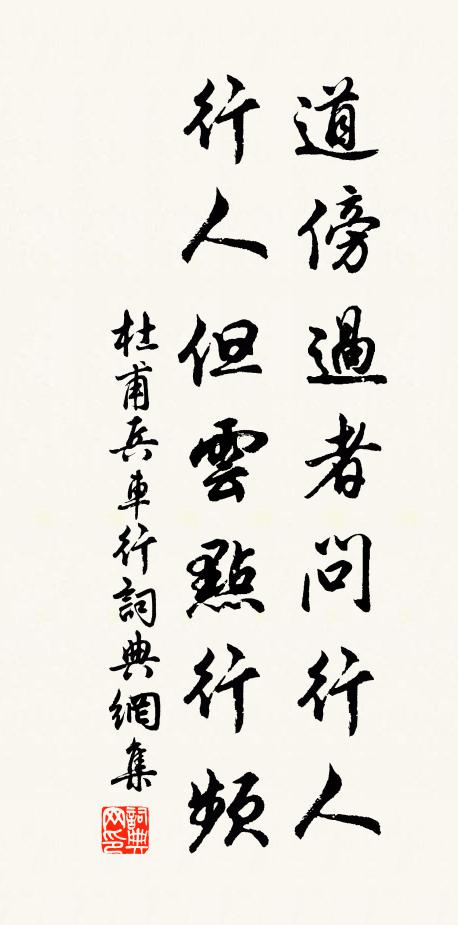 道傍過者問行人
行人但雲點行頻
杜甫兵車行詞典網集
詞典網印